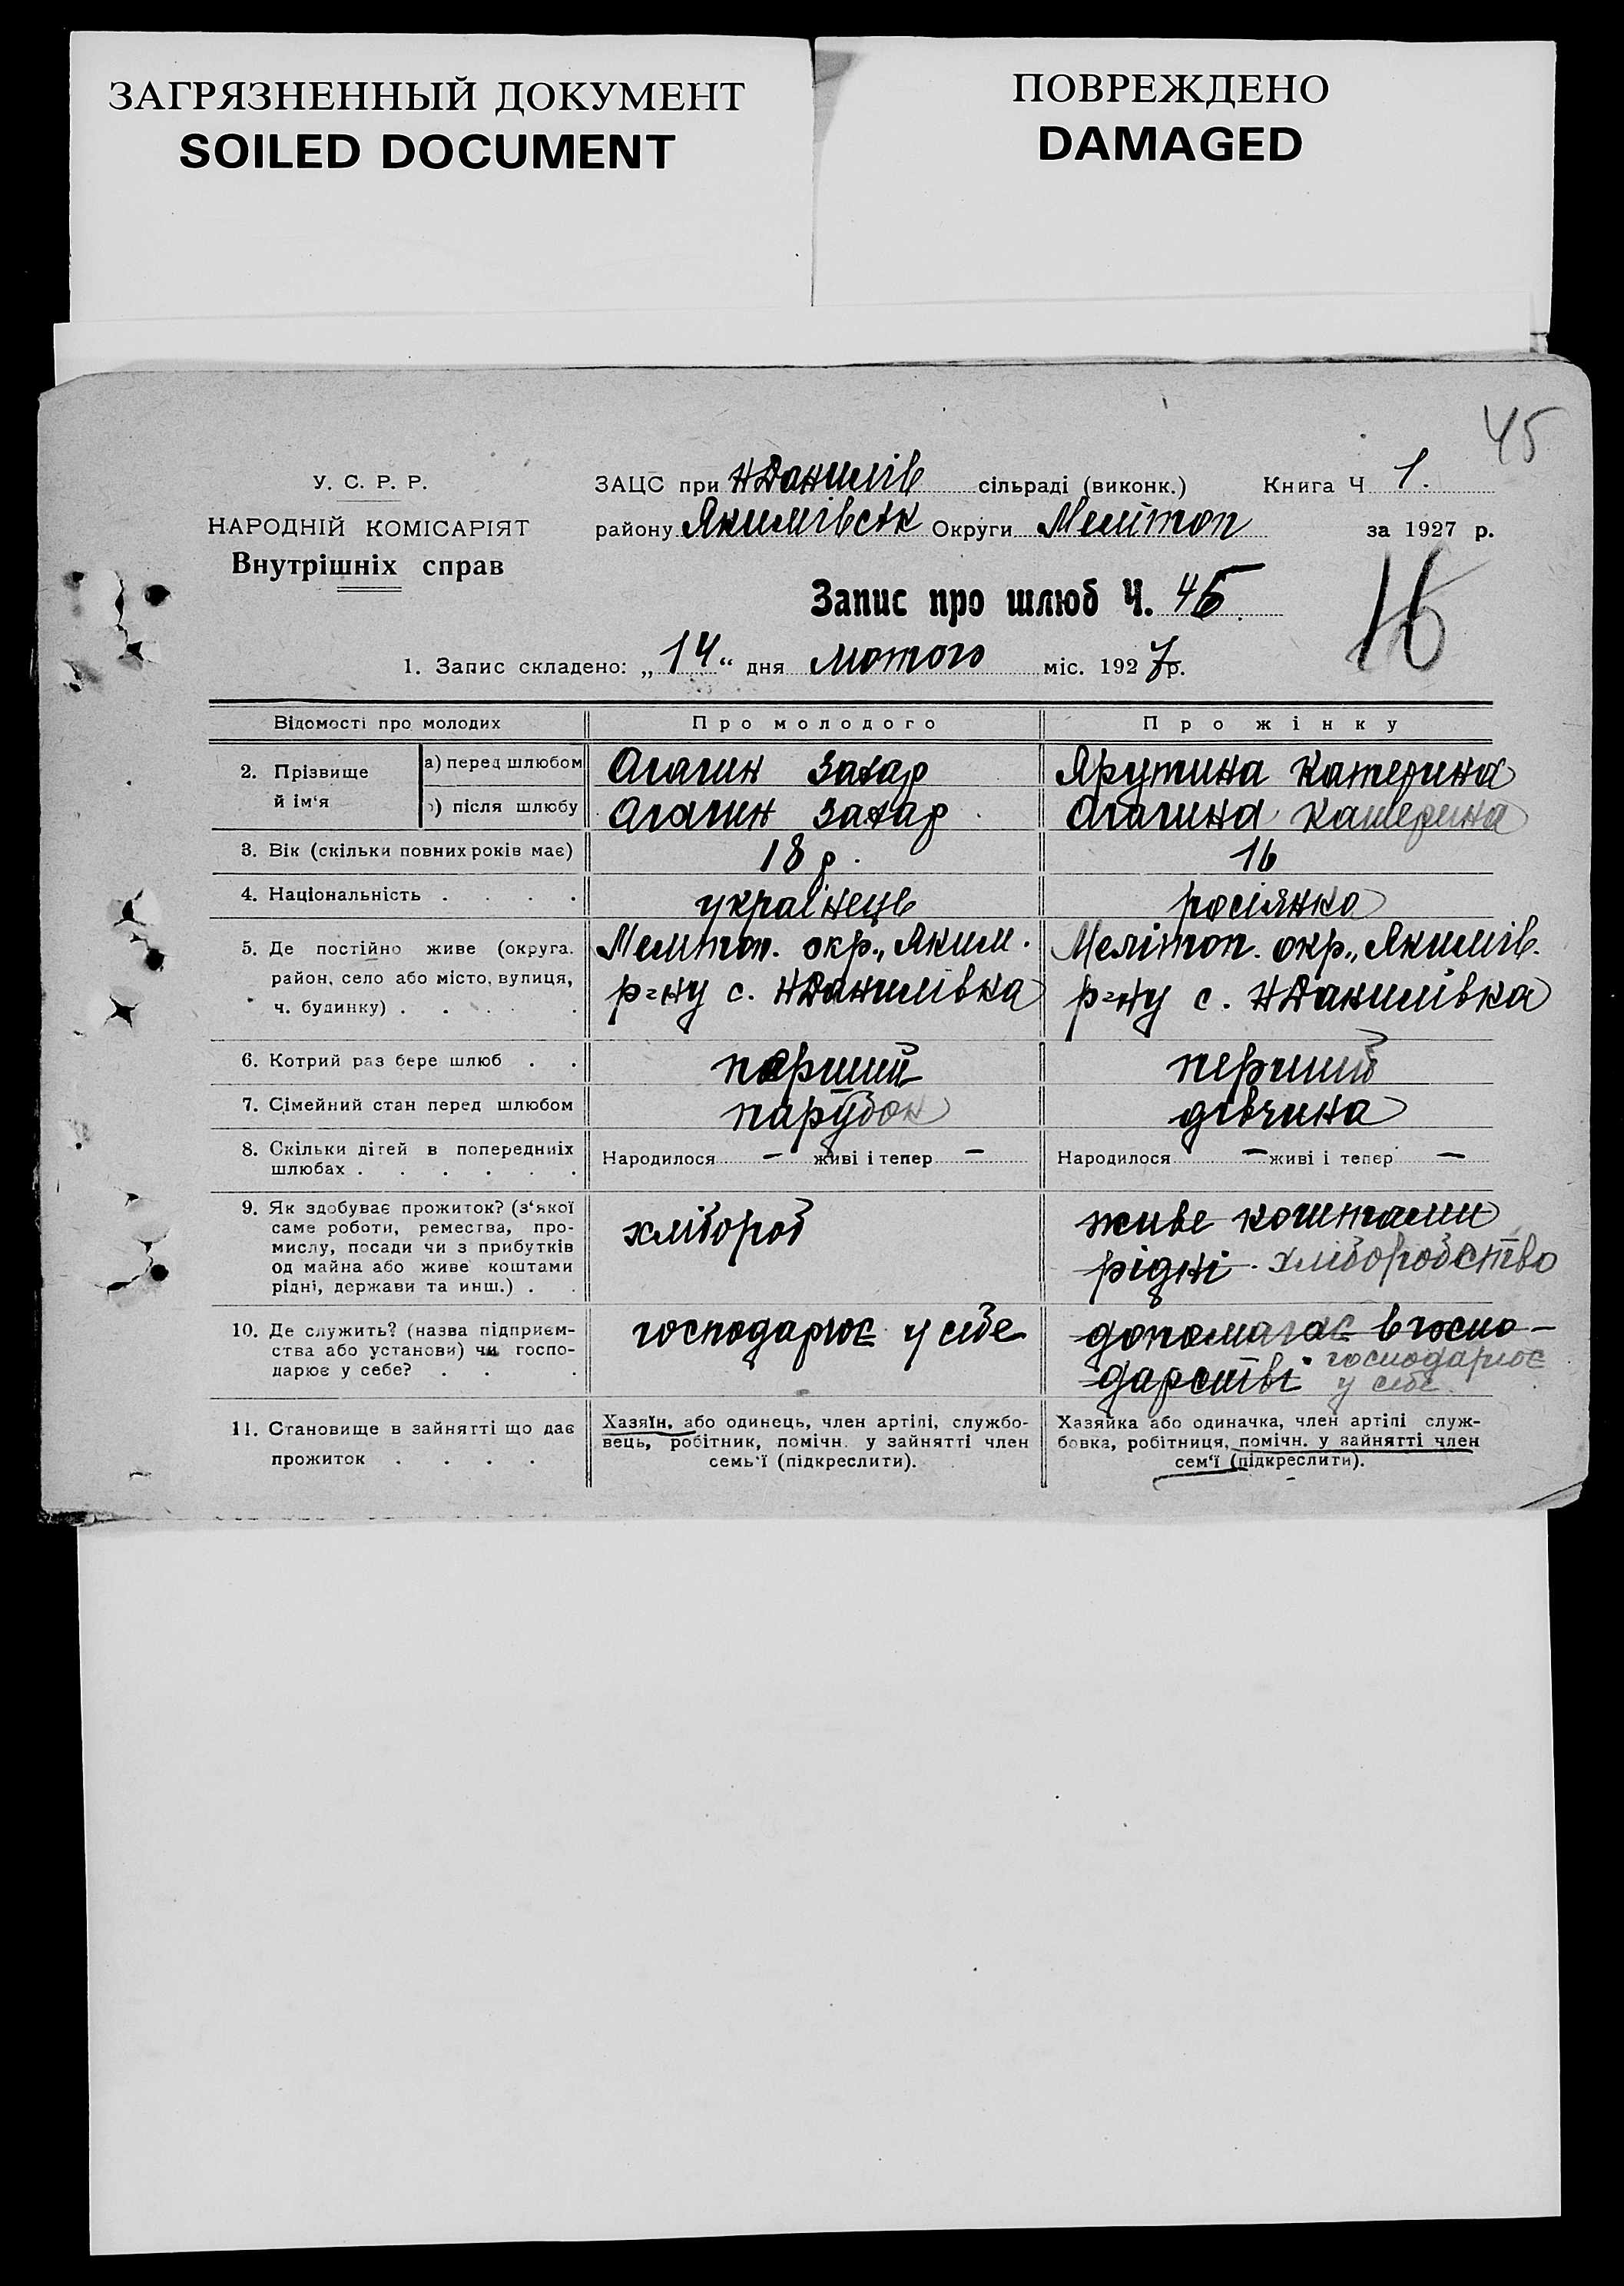 ЗАГРЯЗНЕННЫЙ ДОКУМЕНТ
SOILED DOCUMENT
ПОВРЕЖДЕНО
DAMAGED
45
У. С. Р. Р.
НАРОДНІЙ КОМІСАРІЯТ
Внутрішніх справ
ЗАЦС при НДанилів сільраді (виконк.) Книга Ч 1.
району Якимівськ Округи Мелітоп за 1927 р.
Запис про шлюб Ч. 45
16
1. Запис складено: „14“ дня лютого міс. 1927 р.
Відомості про молодих Про молодого Про жінку
2. Прізвище й ім‘я
а) перед шлюбом Агагин Захар Ярутина Катерина
б) після шлюбу Агагин Захар Агагина Катерина
3. Вік (скільки повних років має) 18 р. 16
4. Національність . . . . українець росіянка
5. Де постійно живе (округа. район, село або місто, вулиця, ч. будинку) . . . .
Мелитоп. окр., Яким.
р=ну с. НДанилівка
Мелітоп. окр., Якимів.
р=ну с. НДанилівка
6. Котрий раз бере шлюб . . перший перший
7. Сімейний стан перед шлюбом парубок дівчина
8. Скільки дітей в попередніх
шлюбах . . . . . .
Народилося — живі і тепер —
Народилося — живі і тепер —
9. Як здобуває прожиток? (з‘якої
саме роботи, ремества, про-
мислу, посади чи з прибутків
од майна або живе коштами
рідні, держави та инш.) . .
хлібороб
живе коштами
рідні. хліборобство
10. Де служить? (назва підприєм-
ства або установи) чи госпо-
дарює у себе? . . .
господарює у себе
допомагає в госпо-
дарстві. господарює
у себе
11. Становище в зайнятті що дає
прожиток . . . .
Хазяїн, або одинець, член артілі, службо-
вець, робітник, помічн. у зайнятті член
семь‘ї (підкреслити).
Хазяйка або одиначка, член артілі служ-
бовка, робітниця, помічн. у зайнятті член
сем‘ї (підкреслити).